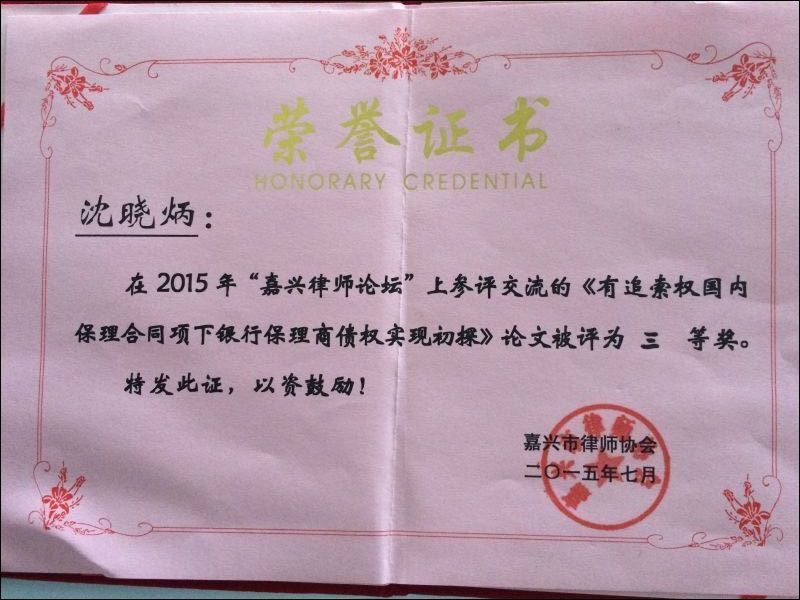 荣誉证书
HONORARY CREDENTIAL
沈晓炳：
在2015年“嘉兴律师论坛”上参评交流的《有追索权国内
保理合同项下银行保理商债权实现初探》论文被评为 三 等奖。
特发此证，以资鼓励！
嘉兴市律师协会
二〇一五年七月